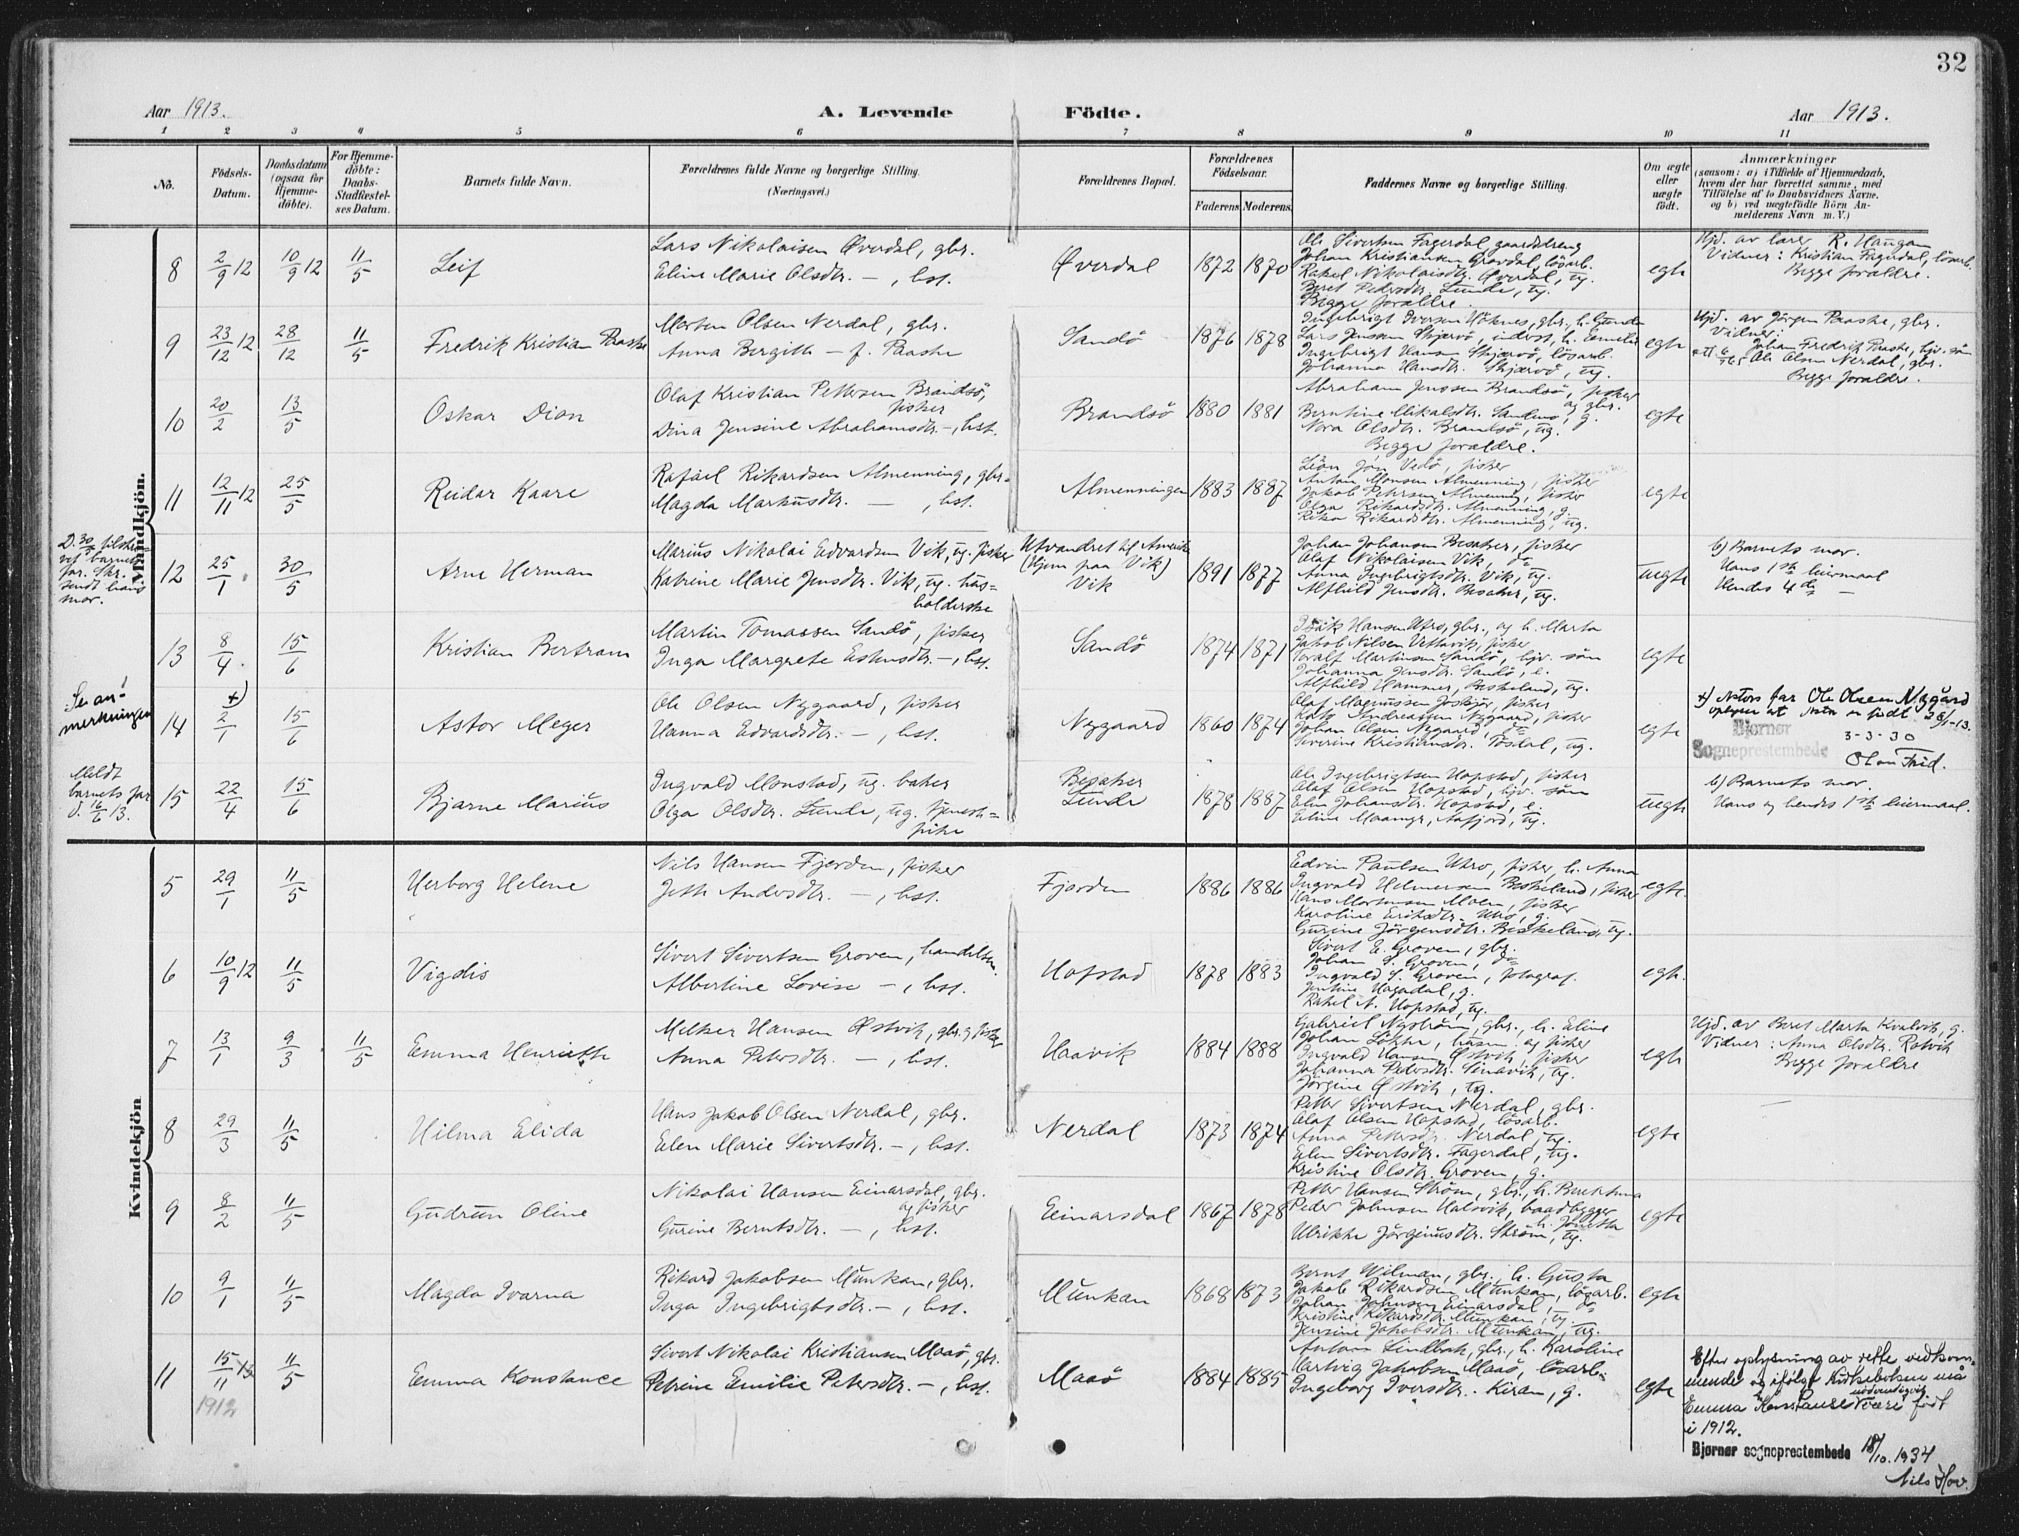 32
Aar 1913.
A. Levende Födte.
Aar 1913.
1 2 3 4 5 6 7 8 9 10 11
No.
Födsels-Datum.
Daabsdatum (ogsaa for Hjemme-döbte).
For Hjemme-döbte: Daabs-Stadfæstel-ses Datum.
Barnets fulde Navn.
Forældrenes fulde Navne og borgerlige Stilling.
(Næringsvei.)
Forældrenes Bopæl.
Forældrenes Födselsaar.
Faderens. Moderens.
Faddernes Navne og borgerlige Stilling.
Om ægte eller uægte födt.
Anmærkninger
(saasom: a) i Tilfælde af Hjemmedaab,
hvem der har forrettet samme, med
Tilföielse af to Daabsvidners Navne.
og b) ved uægtefödte Börn An-
melderens Navn m. V.)
Mandkjön.
8 2/9 12 10/9 12 11/5 Leif
Lars Nikolaisen Øverdal, gbr.
Eline Marie Olsdtr. — , hst.
Øverdal 1872 1870
Ole Sivertsen Fagerdal, gaardsdreng
Johan Kristiansen Grovdal, lösarb.
Rakel Nikolaisdtr. Øverdal, ug.
Beret Pedersdtr. Lunde, ug.
Begge foraldre.
egte
Hjd. av lærer R. Haugan
Vidner: Kristian Fagerdal, lösarb.
Begge foraldre.
9 23/12 12 28/12 11/5 Fredrik Kristian Paaske
Morten Olsen Nerdal, gbr.
Anna Bergitte — f. Paaske
Sandö 1876 1878
Ingebrigt Iversen Höknes, gbr., h. Gunda
Lars Jensen Skjærvö, inderst, h. Emelie
Ingebrigt Hansen Skjærvö, lösarb.
Johanna Hansdtr. Skjærvö, ug.
egte
Hjd. av Jörgen Paaske, gbr.
Vidner:
Johan Fredrik Paaske, hjv. sön
Ole Olsen Nerdal, gbr.
Begge foraldre.
10 20/2 13/5 Oskar Dion
Olaf Kristian Pettersen Brandsö, fisker
Dina Jensine Abrahamsdtr. —, hst.
Brandsö 1880 1881
Abraham Jenssen Brandsö, fisker og gbr.
Berntine Mikalsdtr. Sandmo, g.
Nora Olsdtr. Brandsö, ug.
Begge foraldre.
egte
11 12/11 12 25/5 Reidar Kaare
Rafael Rikardsen Almenning, gbr.
Magda Markusdtr. — , hst.
Almenningen 1883 1887
Anton Monsen Almenning, fisker
Jakob Petersen Almenning, fisker
Olga Rikardsdtr. Almenning, g.
Rika Rikardsdtr. Almenning, ug.
egte
12 25/1 30/5 Arne Herman
Marius Nikolai Edvardsen Vik, ug. fisker
Katrine Marie Jensdtr. Vik, ug. hus=
holderske
Utvandret til Amerika
(Hjem paa Vik)
Vik
1891 1877
Johan Johansen Besaker, fisker
Olaf Nikolaisen Vik, do
Anna Ingebrigtsdtr. Vik, ug.
Alfhild Jensdtr. Besaker, ug.
uegte
b) Barnets mor.
Hans 1ste leiermaal
Hendes 4de —
13 8/4 15/6 Kristian Bertram
Martin Tomassen Sandö, fisker
Inga Margrete Estensdtr. —, hst.
Sandö 1874 1871
Isak Hansen Utro, gbr., og h. Marta
Jakob Nilsen Vettavik, fisker
Toralf Martinsen Sandö, hjv. sön
Johanna Jensdtr. Sandö, e.
Alfhild Hammer, Beskeland, ug.
egte
Se an-
merkningen!
14 +) 2/1 15/6 Astor Meyer
Ole Olsen Nygaard, fisker
Hanna Edvardsdtr. — , hst.
Nygaard 1860 1874
Olaf Magnussen Joskjör, fisker
Kato Andreassen Nygaard, fisker
Johan Olsen Nygaard, do
Severine Kristiansdtr. Tösdal, ug.
egte
+) Astors far Ole Olsen Nygård
oplyser at Astor er født 28/1-13.
Bjørnør
Sogneprestembede
3-3-30
Meldt
barnets far
d. 16/6 13.
15 22/4 15/6 Bjarne Marius
Ingvald Monstad, ug. baker
Olga Olsdtr. Lunde, ug. tjeneste-
pike
Besaker
Lunde
1878 1887
Ole Ingebrigtsen Hopstad, fisker
Olaf Olsen Hopstad, hjv. sön
Elen Johansdtr. Hopstad, e.
Eline Maamyr, Aafjord, ug.
uegte
b) Barnets mor.
Hans og hendes 1ste leiermaal.
Kvindekjön
5 29/1 11/5 Herborg Helene
Nils Hansen Fjorden, fisker
Jette Andersdtr. — , hst.
Fjorden 1886 1886
Edvin Paulsen Utro, fisker, h. Anna
Ingvald Helmersen Beskeland, fisker
Hans Mortensen Moen, fisker
Karoline Eriksdtr. Utro, g.
Gurine Jörgensdtr. Beskeland, ug.
egte.
6 10/9 12 11/5 Vigdis
Sivert Sivertsen Groven, handelsm.
Albertine Lovise — , hst.
Hofstad 1878 1883
Sivert E. Groven, gbr.
Johan S. Groven, do
Ingvald S. Groven, fotograf.
Jentine Hagadal, g.
Rakel A. Hopstad, ug.
egte.
7 13/1 9/3 11/5 Emma Henriette
Melker Hansen Østvik, gbr. og fisker
Anna Petersdtr. — , hst.
Haavik 1884 1888
Gabriel Nyström, gbr., h. Eline
Johan Løkke, husm. og fisker
Ingvald Hansen Østvik, fisker
Johanna Petersdtr. Sundvik, ug.
Jörgine Østvik, ug.
egte
Hjd. av Beret Marta Kvalvik, g.
Vidner: Anna Olsdtr. Ratvik
Begge foraldre
8 29/3 11/5 Hilma Elida
Hans Jakob Olsen Nerdal, gbr.
Elen Marie Sivertsdtr. —, hst.
Nerdal 1873 1874
Petter Sivertsen Nerdal, gbr.
Olaf Olsen Hopstad, lösarb.
Anna Petersdtr. Nerdal, ug.
Elen Sivertsdtr. Fagerdal, ug.
Kristine Olsdtr. Groven, g.
egte
9 8/2 11/5 Gudrun Oline
Nikolai Hansen Einarsdal, gbr.
og fisker
Gurine Berntsdtr. — , hst.
Einarsdal 1867 1878
Petter Hansen Ström, gbr., h. Berntina
Peder Johnsen Halsvik, baadbygger
h. Jonetta
Ulrikke Jörginusdtr. Ström, ug.
egte
10 9/1 11/5 Magda Ivarna
Rikard Jakobsen Munkan, gbr.
Inga Ingebrigtsdtr. — , hst.
Munkan 1868 1873
Bernt Wilman, gbr., h. Gusta
Jakob Rikardsen Munkan, lösarb.
Johan Johnsen Einarsdal, do
Kristine Rikardsdtr. Munkan, ug.
Jensine Jakobsdtr. Munkan, ug.
egte
11 15/11 13 11/5 Emma Konstance
1912
Sivert Nikolai Kristiansen Maaö, gbr.
Petrine Emilie Petersdtr. —, hst.
Maaö 1884 1885
Antona Lindbak, gbr., h. Karoline
Hartvig Jakobsen Maaö, lösarb.
Ingeborg Iversdtr. Kiran, g.
egte
Efter oplysning av rette vedkom-
mende og ifølge kirkeboken må
Emma Konstanse nødvendigvis være født
i 1912.
Bjørnør sogneprestembede 18/10. 1934
Nils Hov.